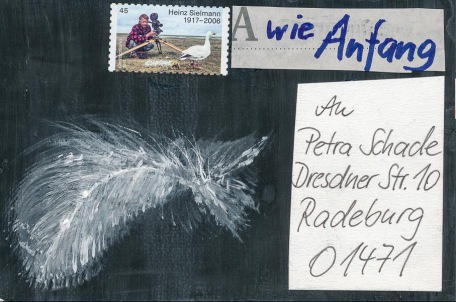 45
Heinz Sielmann
1917–2006
A wie Anfang
An
Petra Schade
Dresdner Str. 10
Radeburg
01471